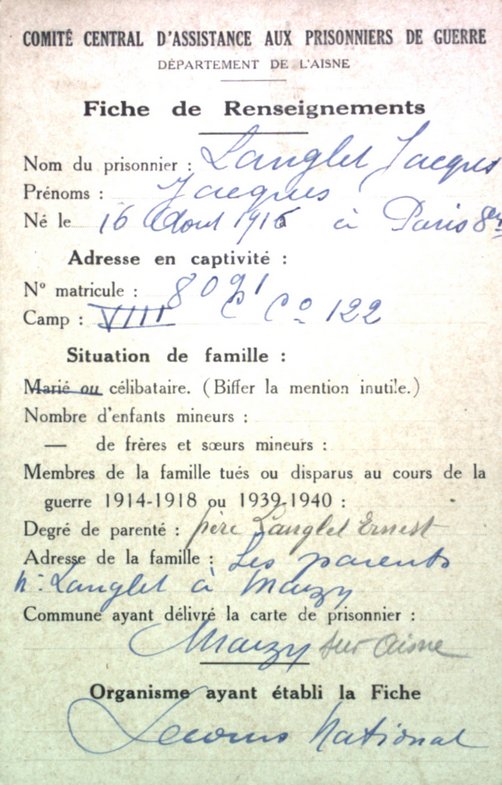 COMITÉ CENTRAL D'ASSISTANCE AUX PRISONNIERS DE GUERRE
DÉPARTEMENT DE L'AISNE
Fiche de Renseignements
Nom du prisonnier : Langlet Jacques
Prénoms : Jacques
Né le 16 Aout 1916 à Paris 8e
Adresse en captivité :
N° matricule : 8091
Camp : VIII C Co 122
Situation de famille :
Marié ou célibataire. (Biffer la mention inutile.)
Nombre d'enfants mineurs :
— de frères et sœurs mineurs :
Membres de la famille tués ou disparus au cours de la
guerre 1914-1918 ou 1939-1940 :
Degré de parenté : père Langlet Ernest
Adresse de la famille : Ses parents
Langlet à Maizy
Commune ayant délivré la carte de prisonnier :
Maizy sur Aisne
Organisme ayant établi la Fiche
Secours National